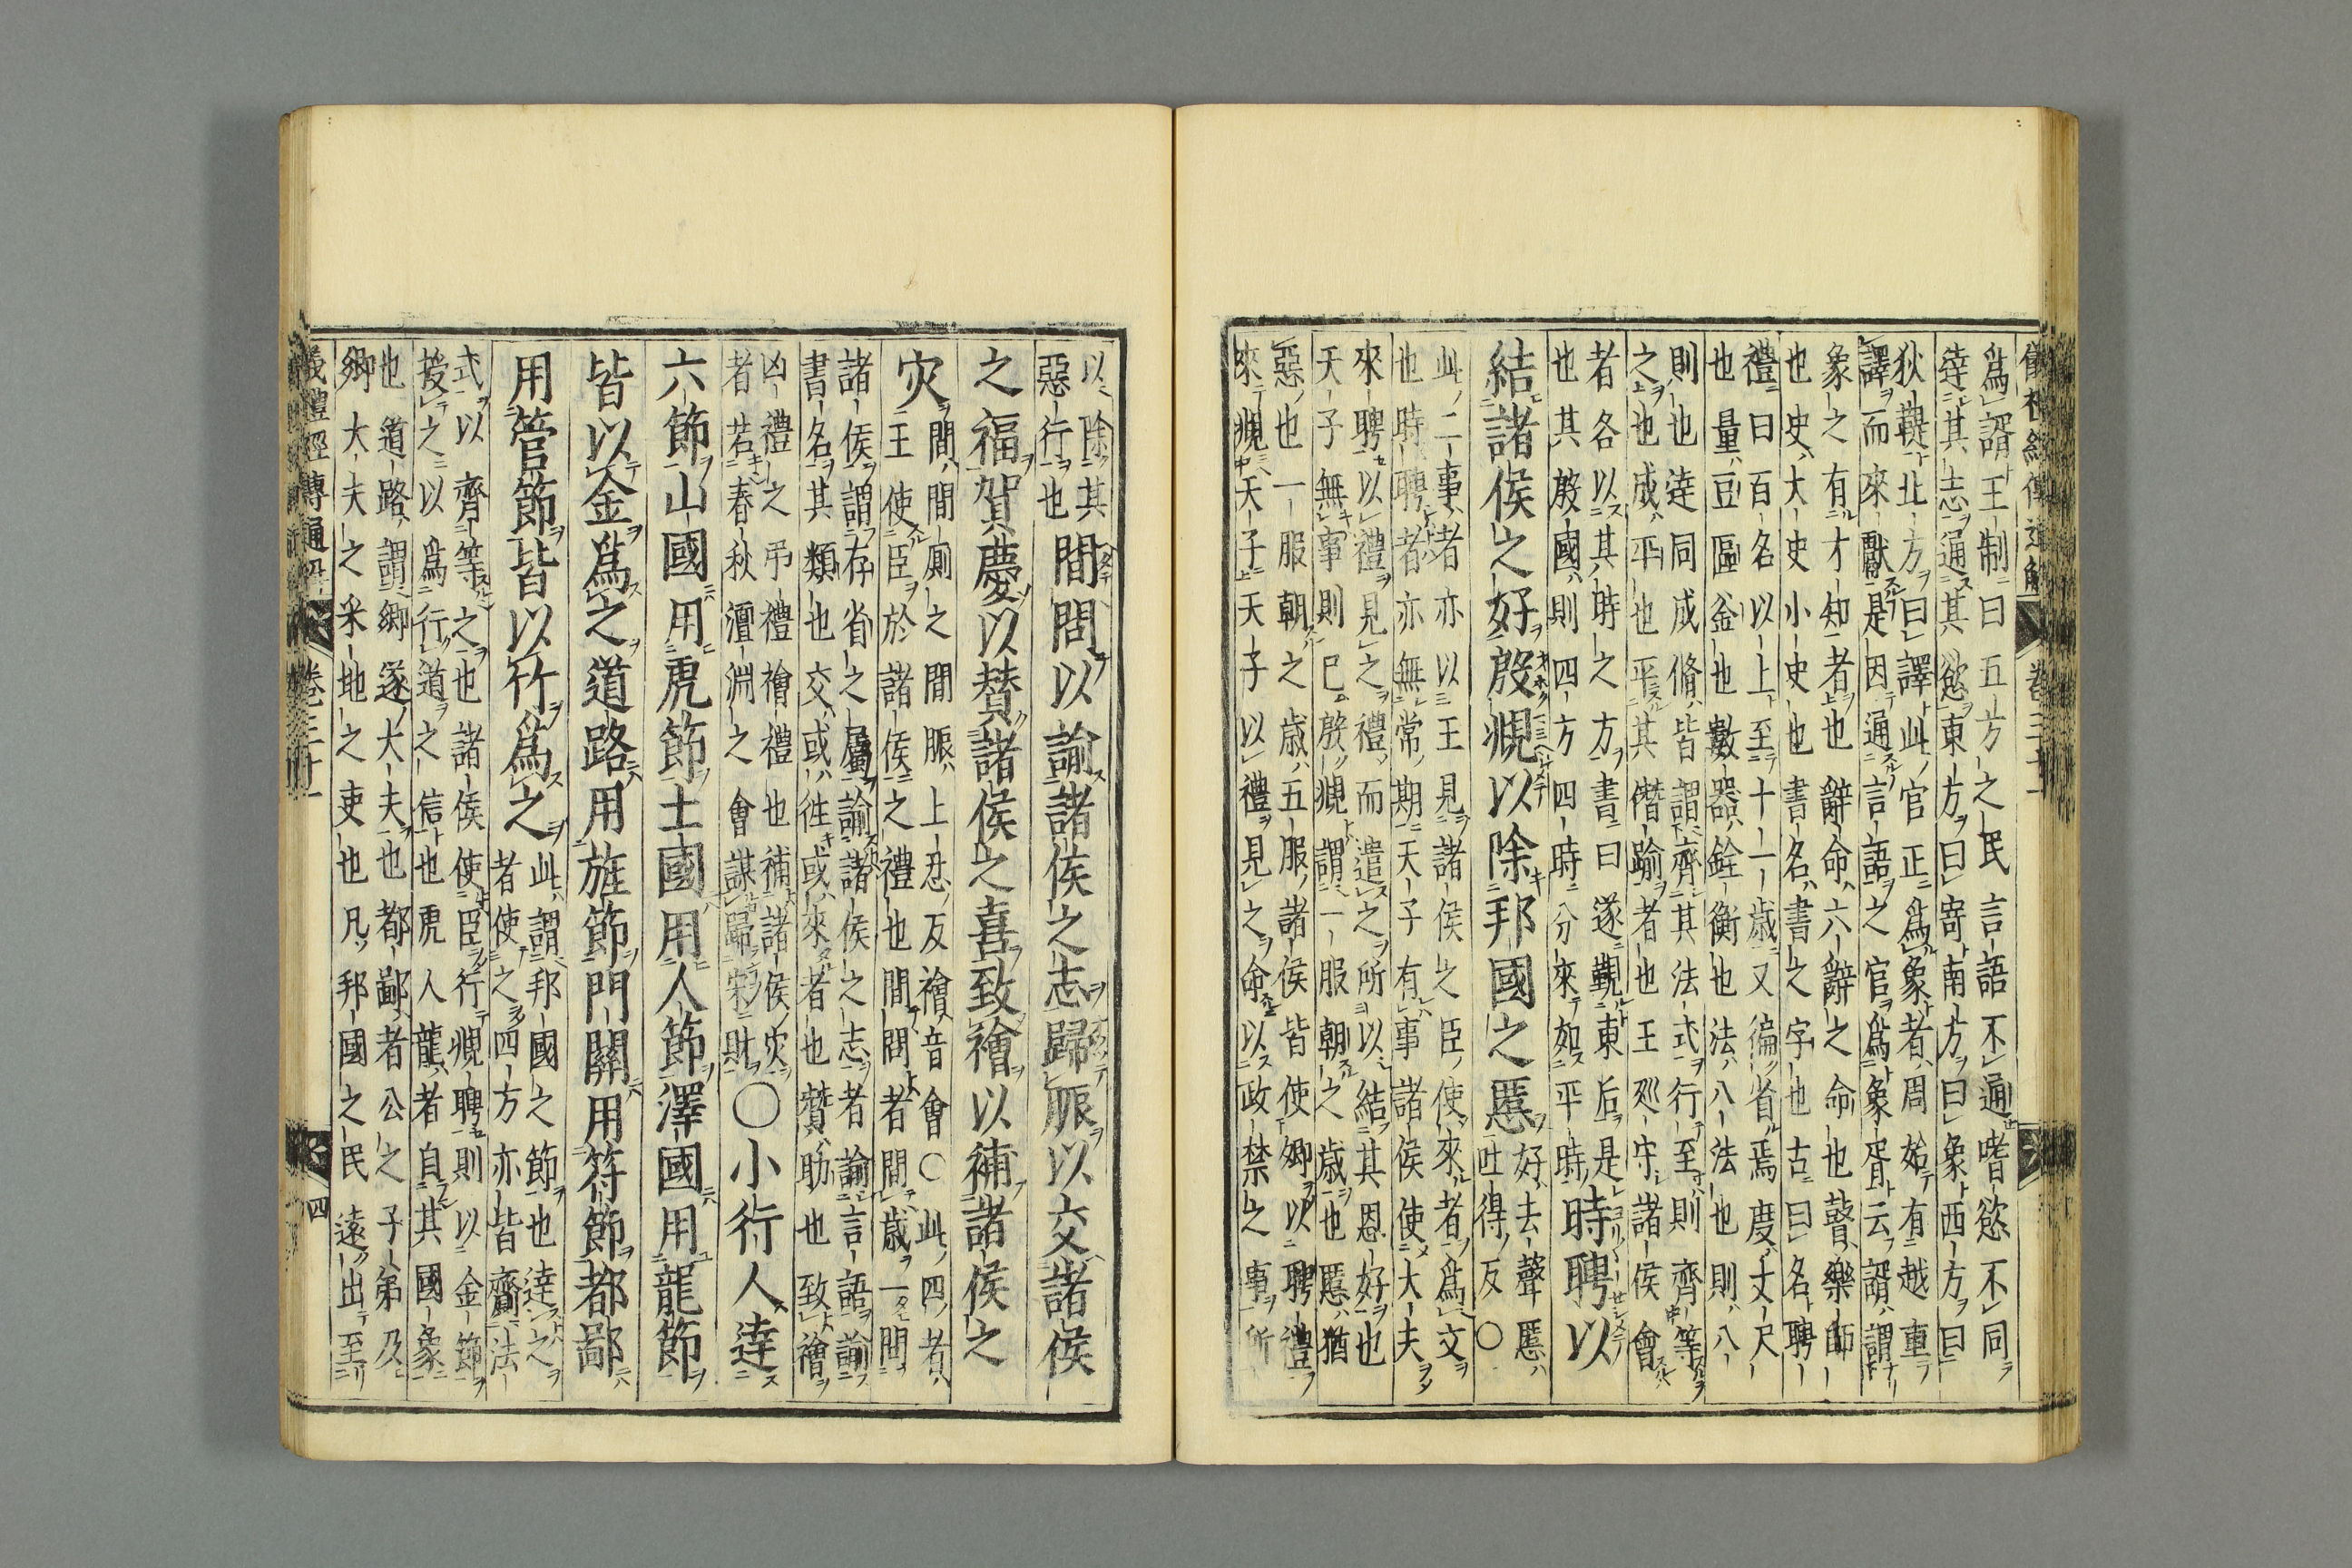 儀禮經傳通解 卷三十一
爲諝王制曰五方之民言語不通嗜慾不同
達其志通其慾東方曰寄南方曰象西方曰
狄鞮北方曰譯此官正爲象者周始有越重
譯而來獻是因通言語之官爲象胥云諝謂
象之有才知者也辭命六辭之命也瞽樂師
也史大史小史也書名書之字也古曰名聘
禮曰百名以上至十一歲又徧省焉度丈尺
也量豆區釜也數器銓衡也法八法也則八
則也達同成脩皆謂齊其法式行至則齊等
之也成平也平其僭踰者也王巡守諸侯會
者各以其時之方書曰遂覲東后是
也其殷國則四方四時分來如平時 時聘以
結諸侯之好殷覜以除邦國之慝 好去聲慝
吐得反○
此二事者亦以王見諸侯之臣使來者爲文
也時聘者亦無常期天子有事諸侯使大夫
來聘以禮見之禮而遣之所以結其恩好也
天子無事則已殷覜謂一服朝之歲也慝猶
惡也一服朝之歲五服諸侯皆使卿以聘禮
來覜天子天子以禮見之命以政禁之事所
以除其
惡行也 間問以諭諸侯之志歸脤以交諸侯
之福賀慶以贊諸侯之喜致禬以補諸侯之
灾 間間厠之間脤上忍反禬音會○此四者
王使臣於諸侯之禮也間問者間歲一問
諸侯謂存省之屬諭諸侯之志者諭言語諭
書名其類也交或往或來者也贊助也致禬
凶禮之弔禮禬禮也補諸侯灾
者若春秋澶淵之會謀歸宋財 ○小行人達
六節山國用虎節土國用人節澤國用龍節
皆以金爲之道路用旌節門關用符節都鄙
用管節皆以竹爲之 此謂邦國之節也達之
者使之四方亦皆齎法
式以齊等之也諸侯使臣行覜聘則以金節
授之以爲行道之信也虎人龍者自其國象
也道路謂鄉遂大夫也都鄙者公之子弟及
卿大夫之采地之吏也凡邦國之民遠出至
儀禮經傳通解 卷三十一 四